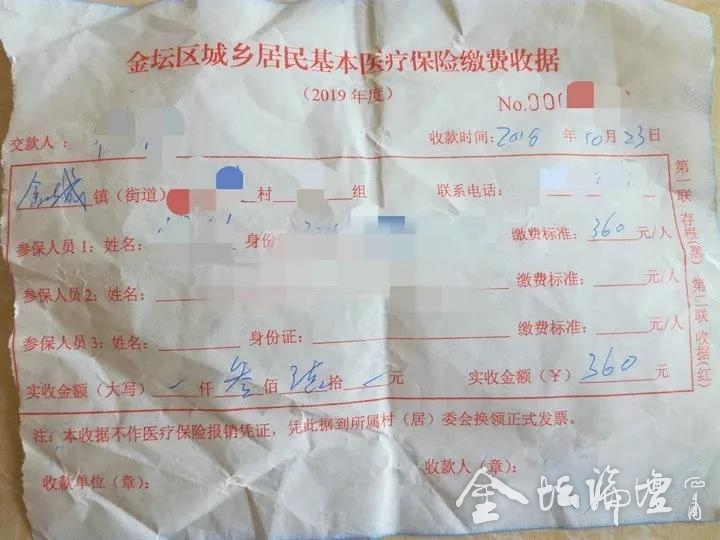 金坛区城乡居民基本医疗保险缴费收据
（2019 年度）
No.00
交款人： 收款时间：2018 年 10 月 23 日
金城 镇（街道） 村 组 联系电话：
参保人员 1：姓名： 身份证 缴费标准：360 元/人
参保人员 2：姓名： 缴费标准： 元/人
参保人员 3：姓名： 身份证： 缴费标准： 元/人
实收金额（大写） 仟 叁 佰 陆 拾 元 实收金额（¥）360
注：本收据不作医疗保险报销凭证，凭此据到所属村（居）委会换领正式发票。
收款单位（章）： 收款人（章）：
第一联 存根(黑) 第二联 收据(红)
金坛论壇